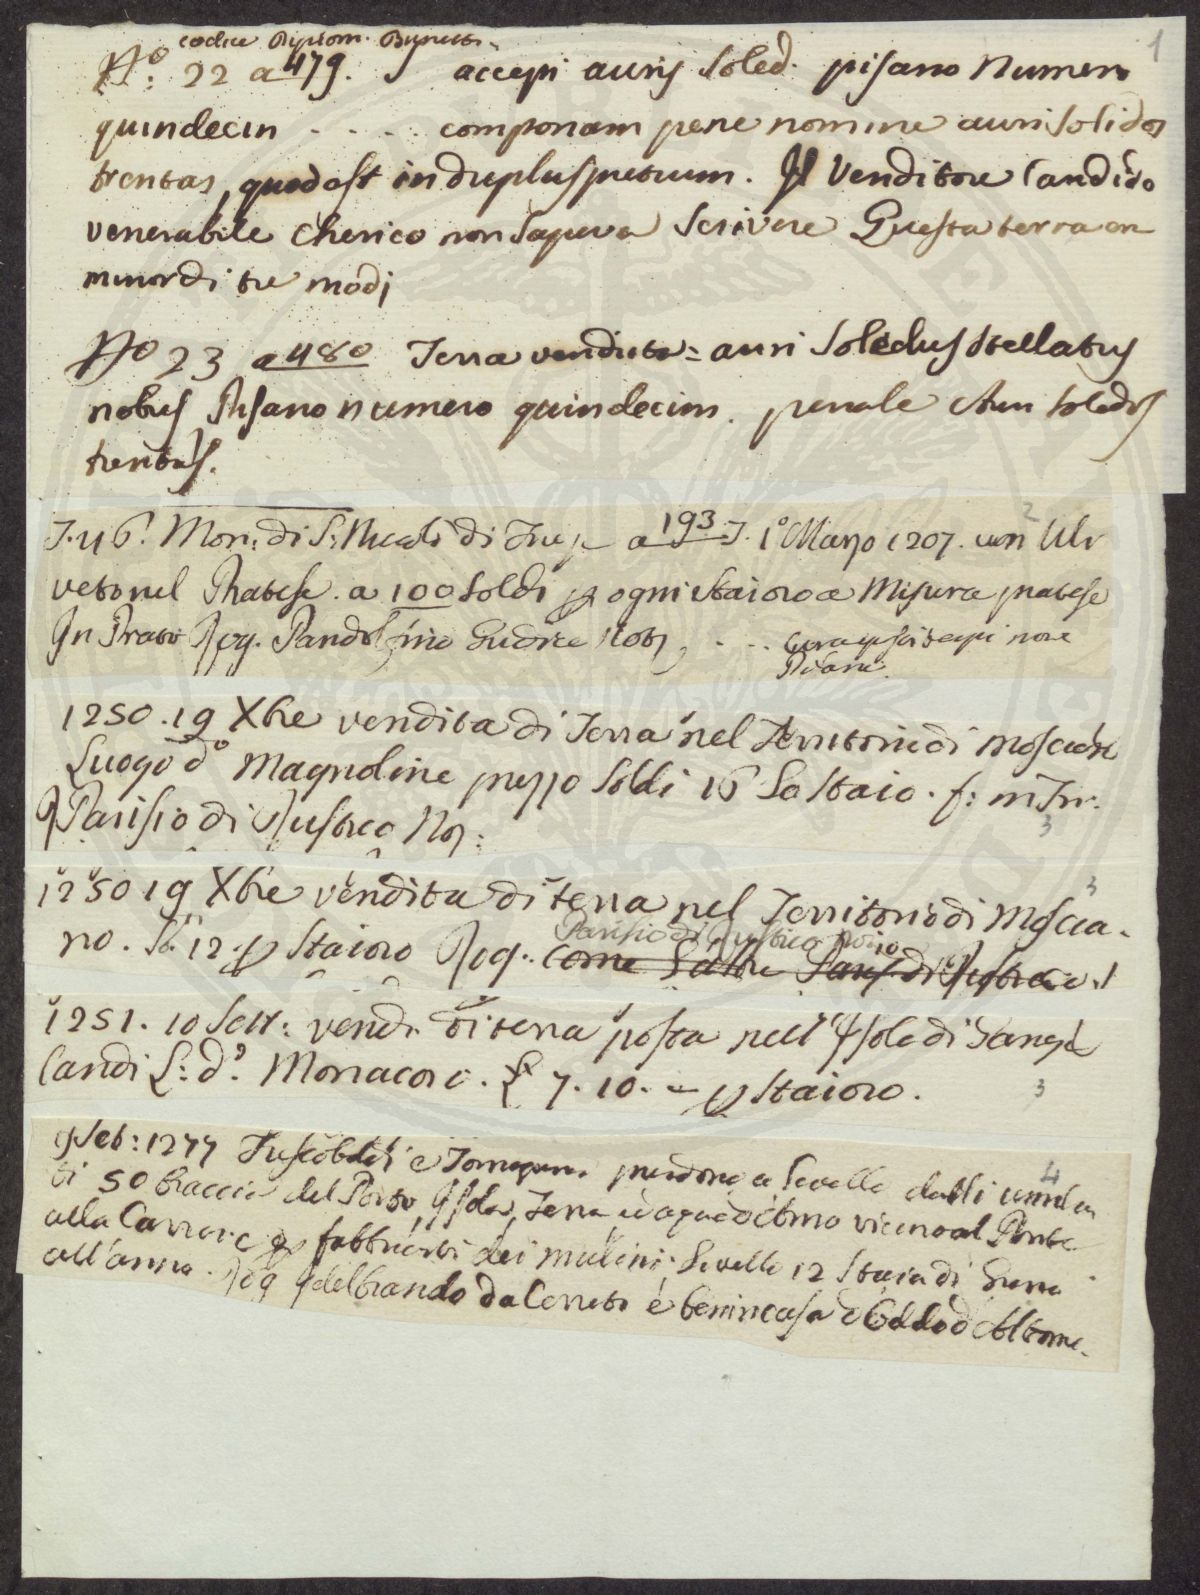 codice Diplom. Brunetti.
1
No: 22 a 479. accepi auris soled. pisano Numero
quindecin . . . . componam pene nomine auri solidos
trentas, quod est in duplus pretium. Il Venditore Candido
venerabile Cherico non sapeva Scrivere Questa terra era
minor di tre modj
No 23 a 480 Terra venduta = auri Soledus Stellatus
nobus Pisano numero quindecim. penale Auri soledos
trentas.
2
T. 46. Mon: di S: Niccolò di a 193 T. 1o Marzo 1207. un Uli
veto nel Pratese. a 100 Soldi p ogni Staioro a Misura pratese
In Prato Rog. Pandolfino Giudice Not, . . .
Pisani.
1250. 19 Xbre vendita di Terra nel Territorio di Mosciano
Luogo do Magnoline prezzo Soldi 16 Lo Staio. f:
3
R Parisio di Rustico No:
3
1250 19 Xbre vendita di terra nel Territorio di Moscia-
Parisio di Rustico Notaio
no. So. 12. p Staioro Rog. come Parisio di Rustico
1251. 10 Sett: vend. di terra posta nell' Isola di
Candi L: do. Monacoro. £ 7. 10. - p Staioro.
3
4
9 Feb: 1277 Frescobaldi e prendono a Livello dalli
ti 50 braccia del Porto, Isola, Terra ed aqua d'Arno vicino al Ponte
alla Carraia p fabbricarvi dei mulini: Livello 12 Staia di Grano
all'anno. Rog Ildebrando da Cerreto e Benincasa d'Oddo d'Altome.